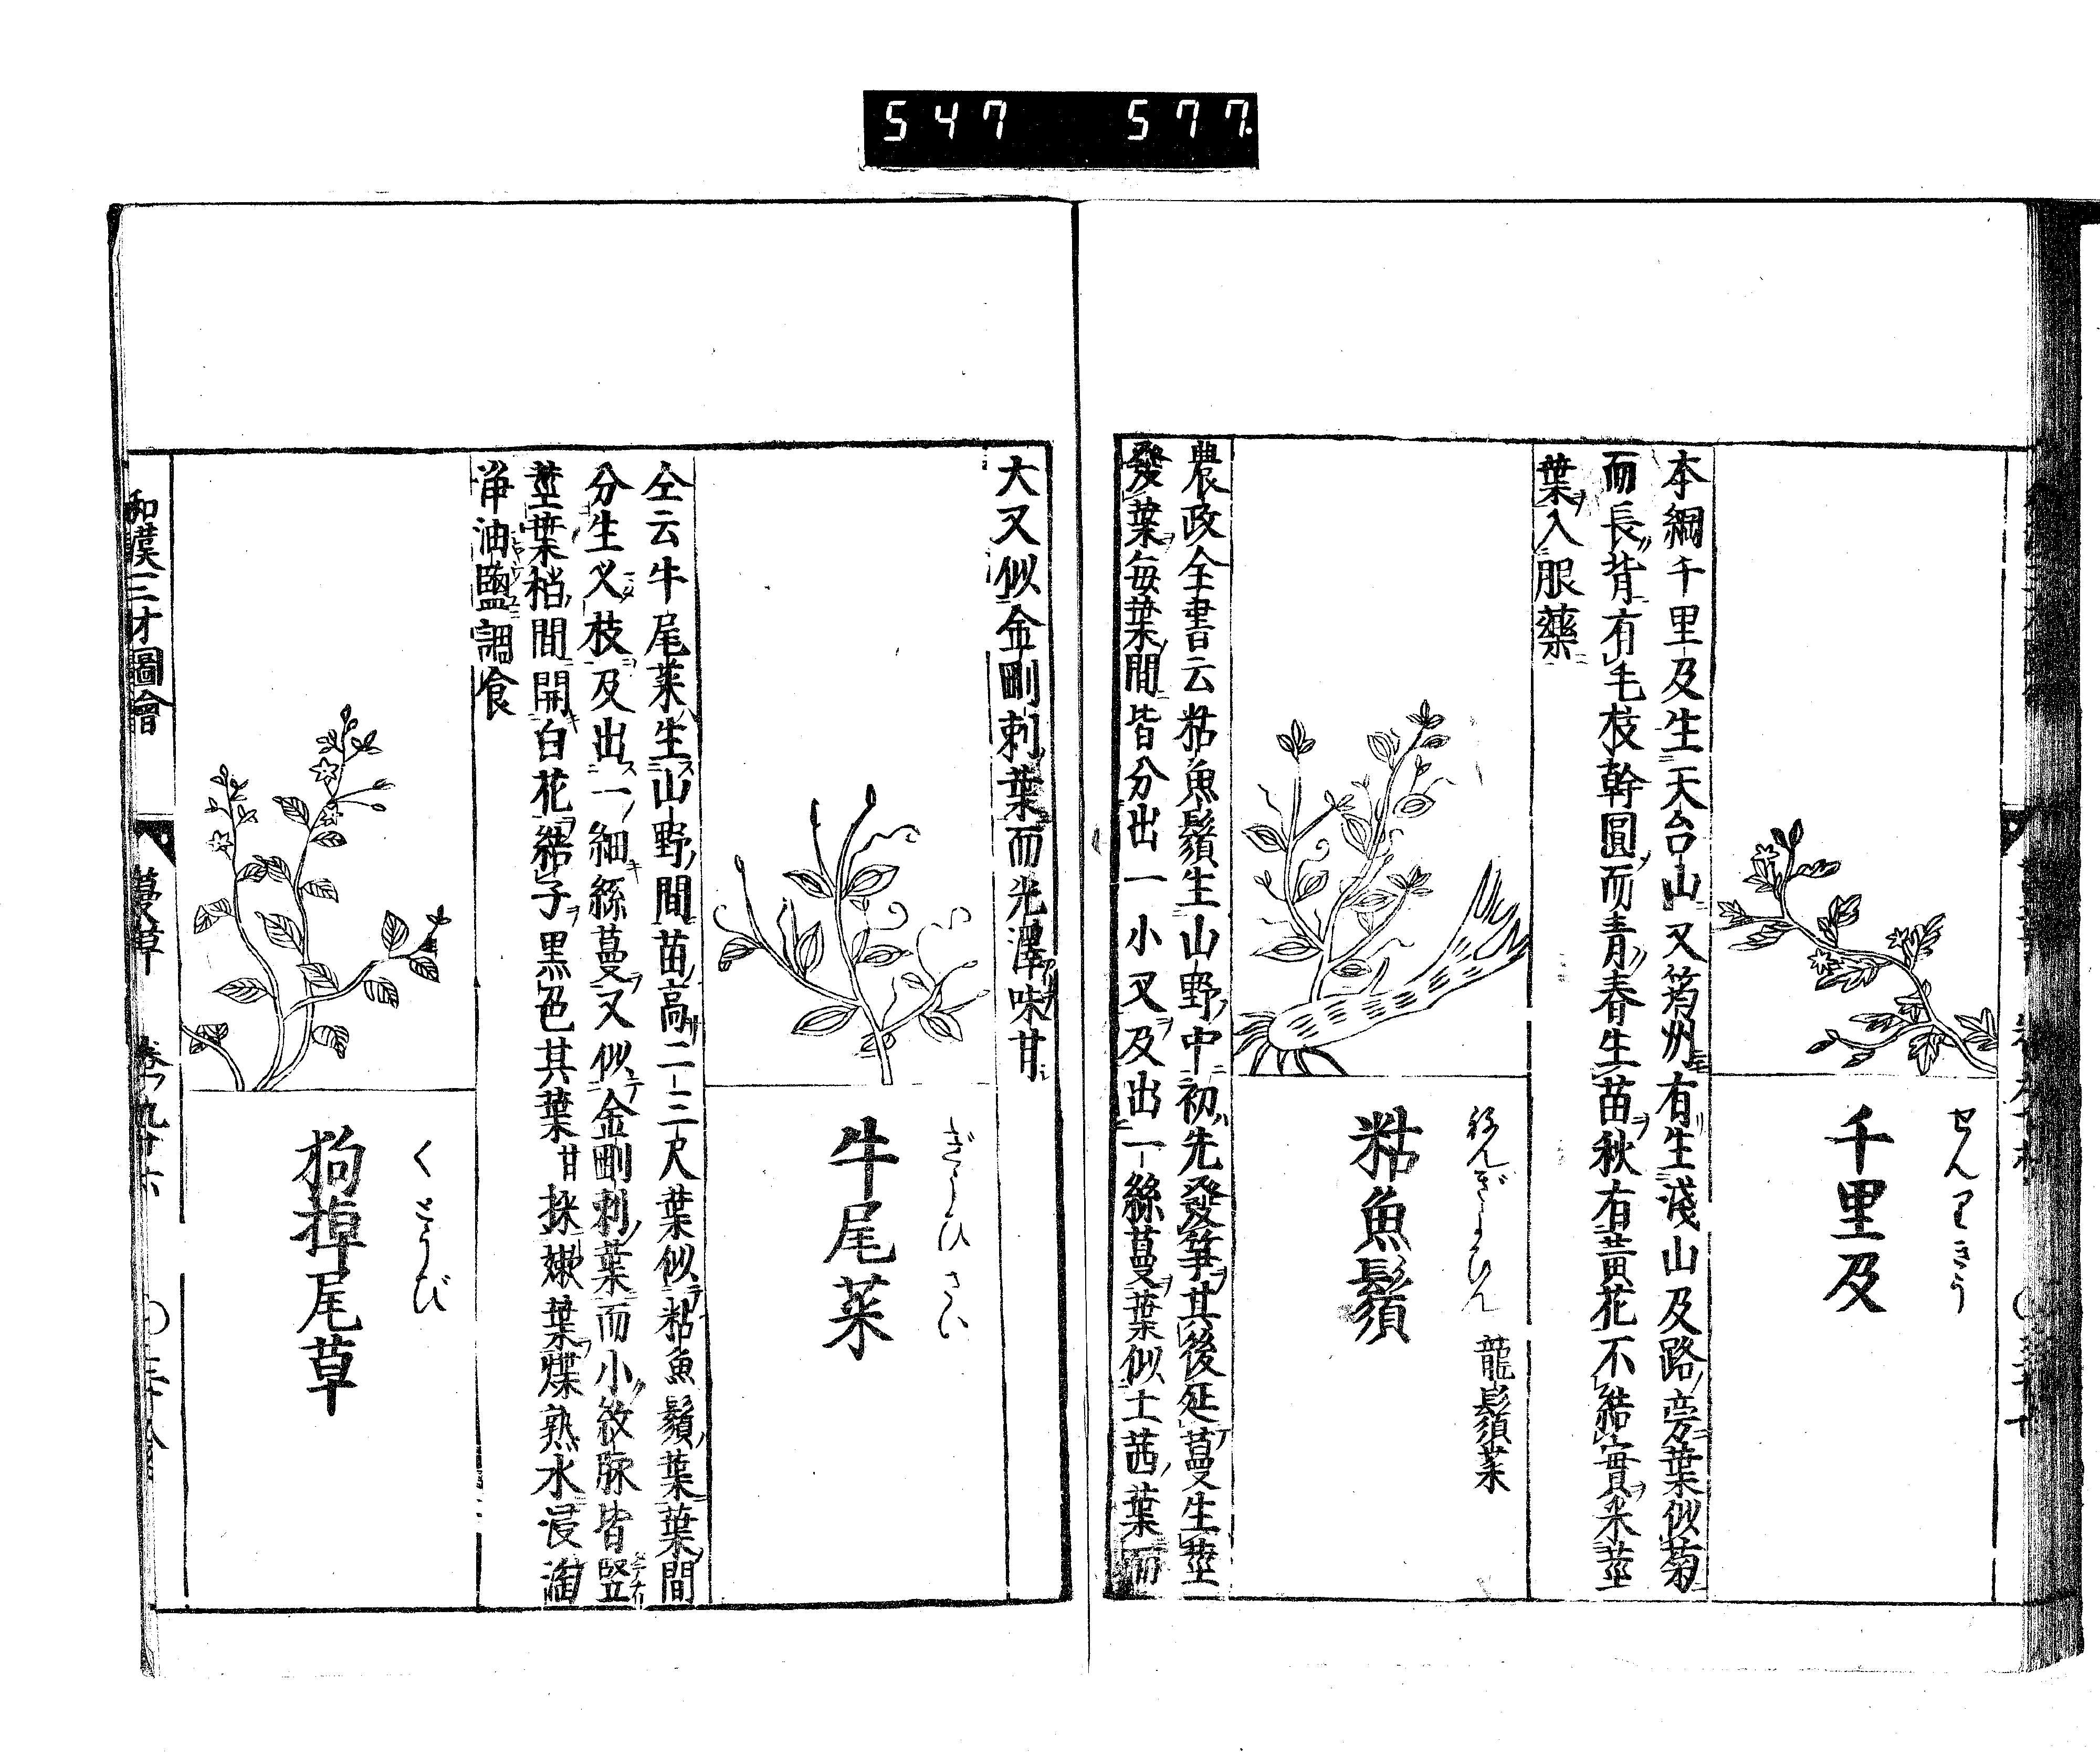 547 577.
せんりきう
千里及
本綱千里及生天台山又筠州有生淺山及路旁葉似菊
而長背有毛枝幹圓而青春生苗秋有黄花不結實釆莖
葉入服藥
ねんぎよひん
龍鬚菜
粘魚鬚
農政全書云粘魚鬚生山野中初先發筍其後延蔓生莖
發葉毎葉間皆分出一小叉及出一絲蔓葉似土茜葉而
大又似金剛刺葉而光澤味甘
ぎうひさい
牛尾菜
仝云牛尾菜生山野間苗高二三尺葉似粘魚鬚葉葉間
分生叉枝及出一細絲蔓又似金剛刺葉而小紋脉皆竪
莖葉梢間開白花結子黒色其葉甘採嫩葉煠熟水浸淘
淨油鹽調食
くとうび
狗掉尾草
和漢三才圖會
蔓草 卷ノ九十六